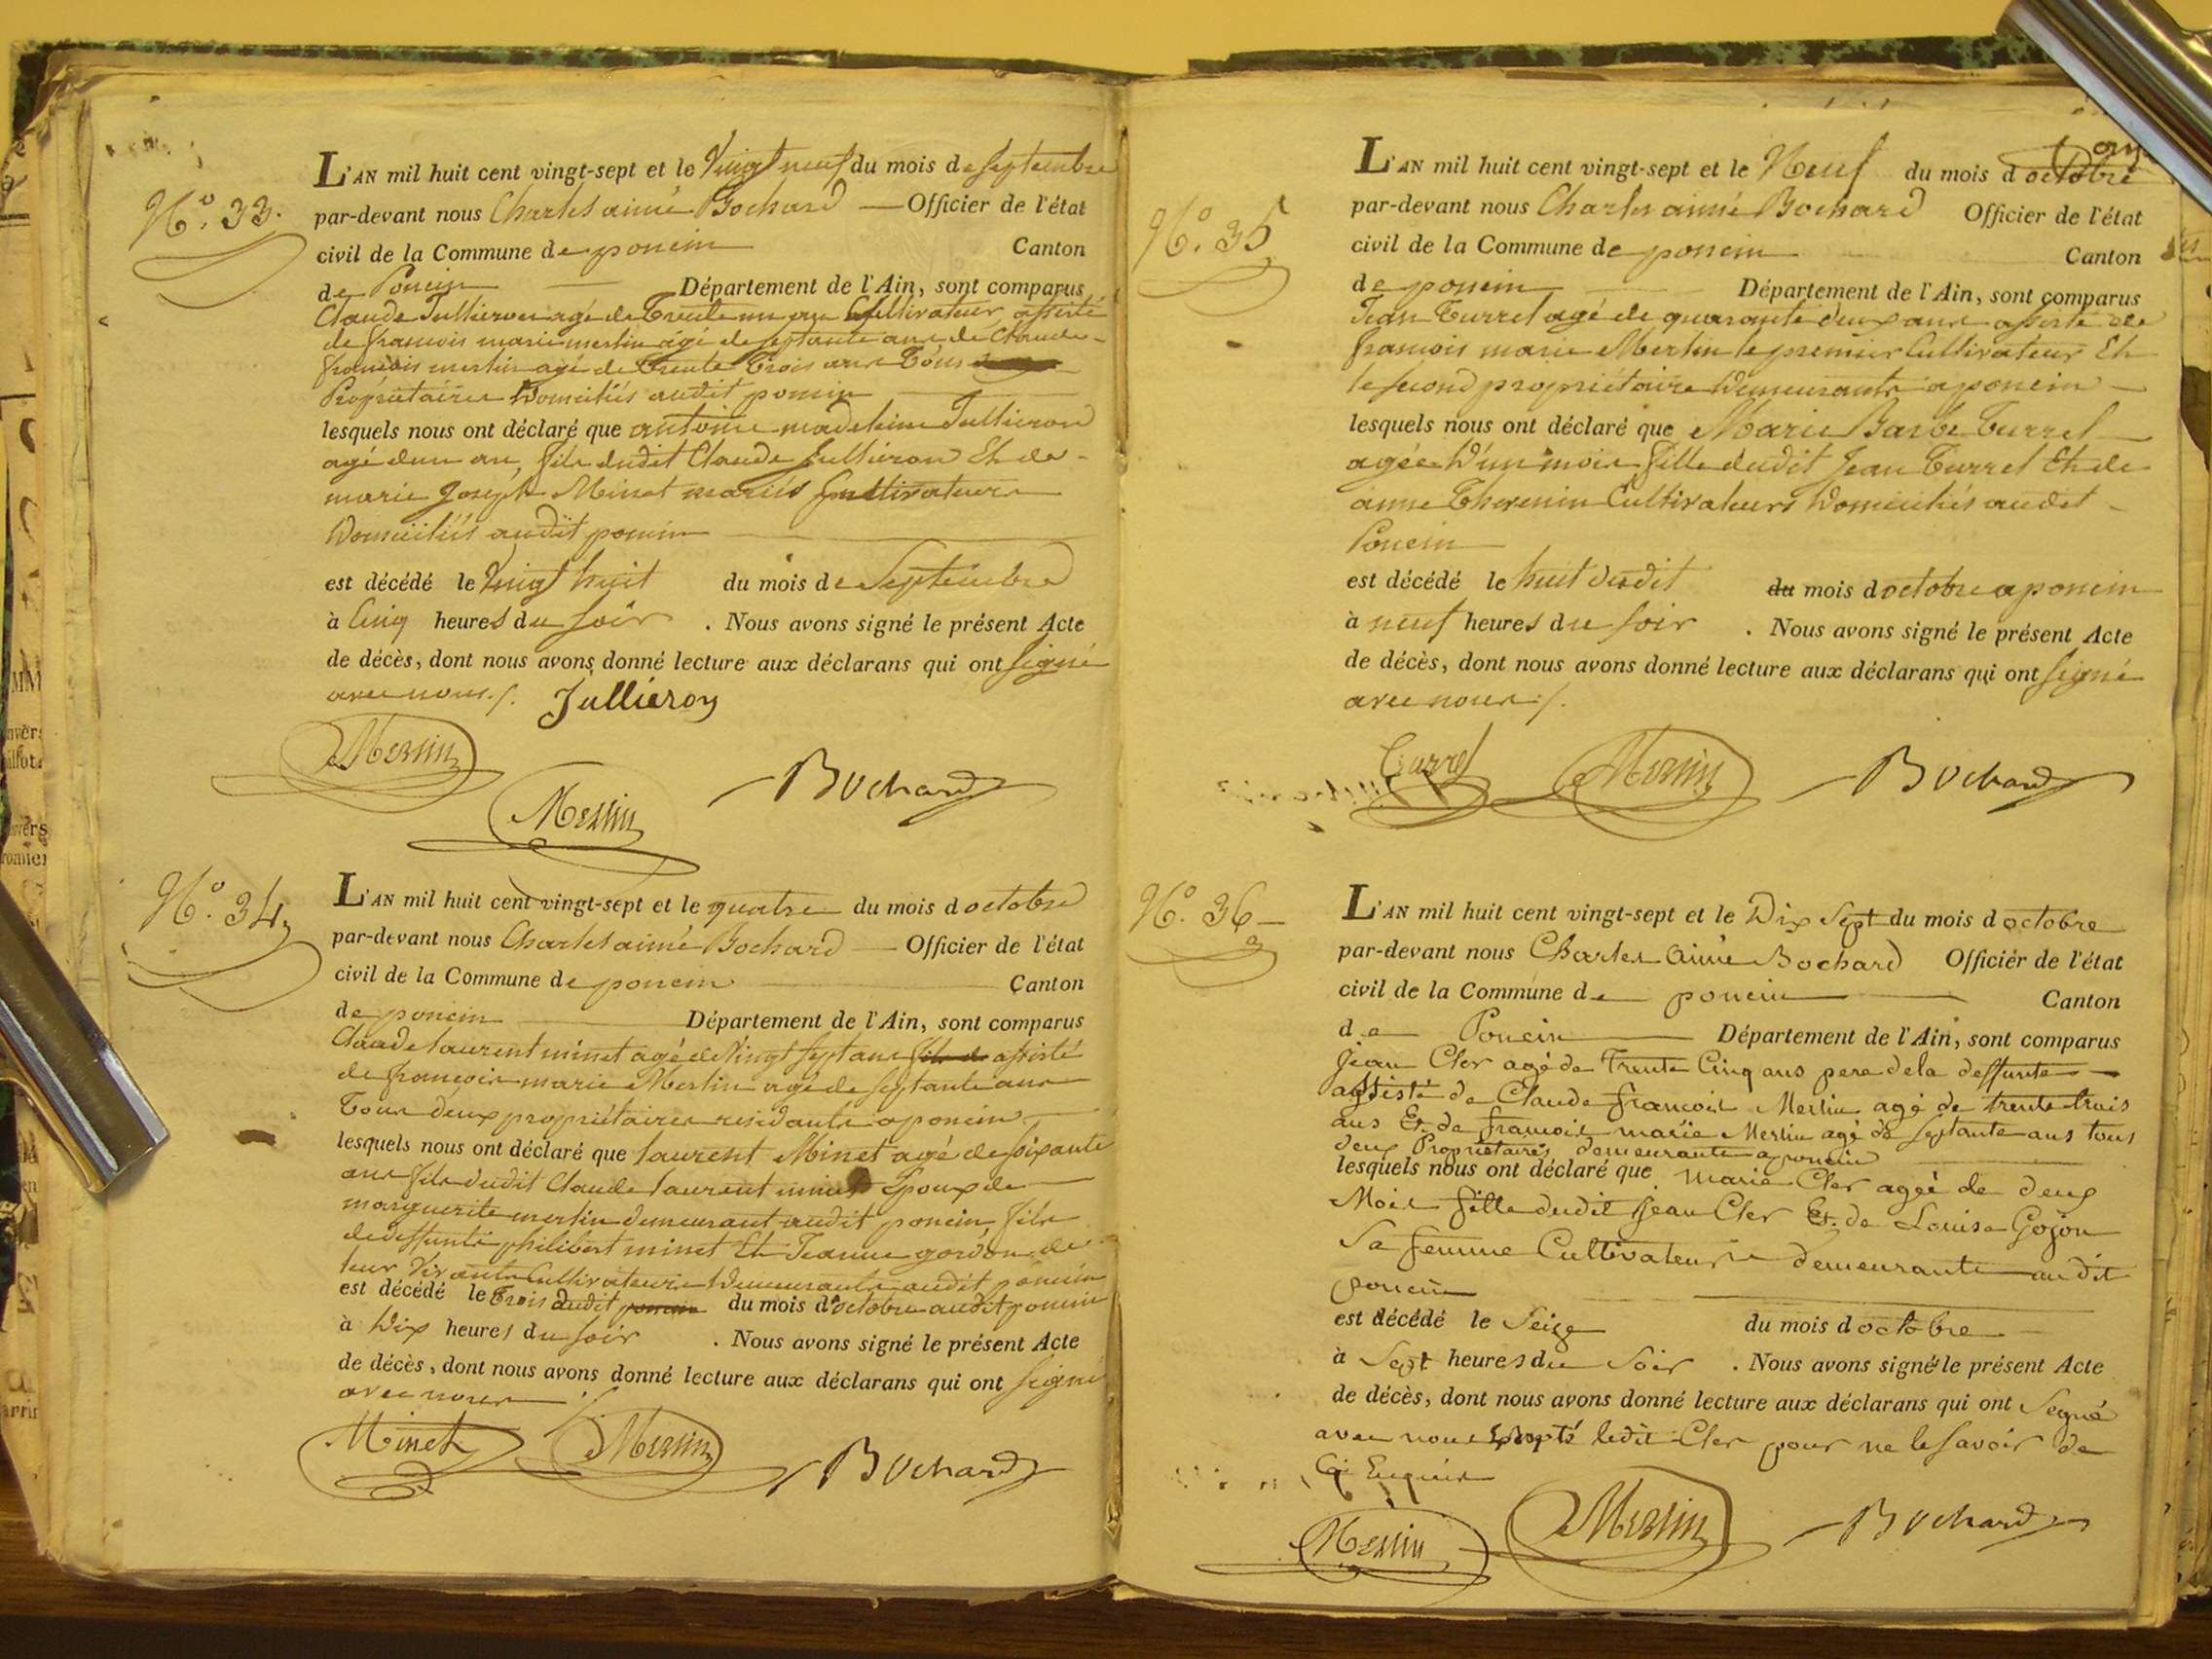 N.° 33.
L'AN mil huit cent vingt-sept et le Vingt neuf du mois de septembre
par-devant nous Charles aimé Bochard — Officier de l'état
civil de la Commune de poncin Canton
de Poncin Département de l'Ain, sont comparus
Claude Jullieron agé de Trente un ans Cultivateur assisté
de francois marie merlin âgé de septante ans de Claude
francois merlin agé de Trente Trois ans Tous
Propriétaires Domiciliés audit poncin
lesquels nous ont déclaré que antoine madeleine Jullieron
agé d'un an, fils dudit Claude Jullieron Et de
marie Joseph Minet mariés Cultivateurs
Domiciliés audit poncin
est décédé le Vingt huit du mois de Septembre
à Cinq heures du soir . Nous avons signé le présent Acte
de décès, dont nous avons donné lecture aux déclarans qui ont signé
avec nous ./. Jullieron
Merlin
Merlin
Bochard
N.° 34
L'AN mil huit cent vingt-sept et le quatre du mois d octobre
par-devant nous Charles aimé Bochard — Officier de l'état
civil de la Commune de poncin Canton
de poncin Département de l'Ain, sont comparus
Claude laurent minet agé de Vingt sept ans fils de assisté
de francois marie Merlin agé de septante ans
Tous deux propriétaires residants a poncin
lesquels nous ont déclaré que laurent Minet agé de soixante
ans fils dudit Claude laurent minet Epoux de
marguerite merlin demeurant audit poncin, fils
de deffunts philibert minet Et Jeanne gordon de
leur Vivants Cultivateurs Demeurants audit poncin
est décédé le Trois dudit poncin du mois d'octobre audit poncin
à Dix heures du soir . Nous avons signé le présent Acte
de décès, dont nous avons donné lecture aux déclarans qui ont signé
avec nous ./.
Minet Merlin Bochard
N.° 35
L'AN mil huit cent vingt-sept et le Neuf du mois d octobre
par-devant nous Charles aimé Bochard Officier de l'état
civil de la Commune de poncin Canton
de poncin Département de l'Ain, sont comparus
Jean Turrel agé de quarante deux ans assisté de
francois marie Merlin le premier Cultivateur Et
le second propriétaire Demeurants a poncin
lesquels nous ont déclaré que Marie Barbe Turrel
agée D'un mois fille dudit Jean Turrel Et de
anne Thevenin Cultivateurs Domiciliés audit
Poncin
est décédé le huit dudit du mois d octobre a poncin
à neuf heures du soir . Nous avons signé le présent Acte
de décès, dont nous avons donné lecture aux déclarans qui ont signé
avec nous ./.
Turrel Merlin Bochard
N.° 36
L'AN mil huit cent vingt-sept et le Dix Sept du mois d octobre
par-devant nous Charles Aimé Bochard Officier de l'état
civil de la Commune de poncin Canton
de Poncin Département de l'Ain, sont comparus
Jean Cler agé de Trente Cinq ans pere de la deffunte
assisté de Claude francois Merlin agé de trente trois
ans Et de francois marie Merlin agé de septante ans tous
deux Propriétaires demeurants a poncin
lesquels nous ont déclaré que Marie Cler agée de deux
Mois fille dudit Jean Cler Et de Louise Gojon
Sa femme Cultivateurs demeurants audit
poncin
est décédé le Seize du mois d octobre
à Sept heures du Soir . Nous avons signé le présent Acte
de décès, dont nous avons donné lecture aux déclarans qui ont Signé
avec nous Excepté ledit Cler pour ne le savoir de
Ce Enquis
Merlin Merlin Bochard